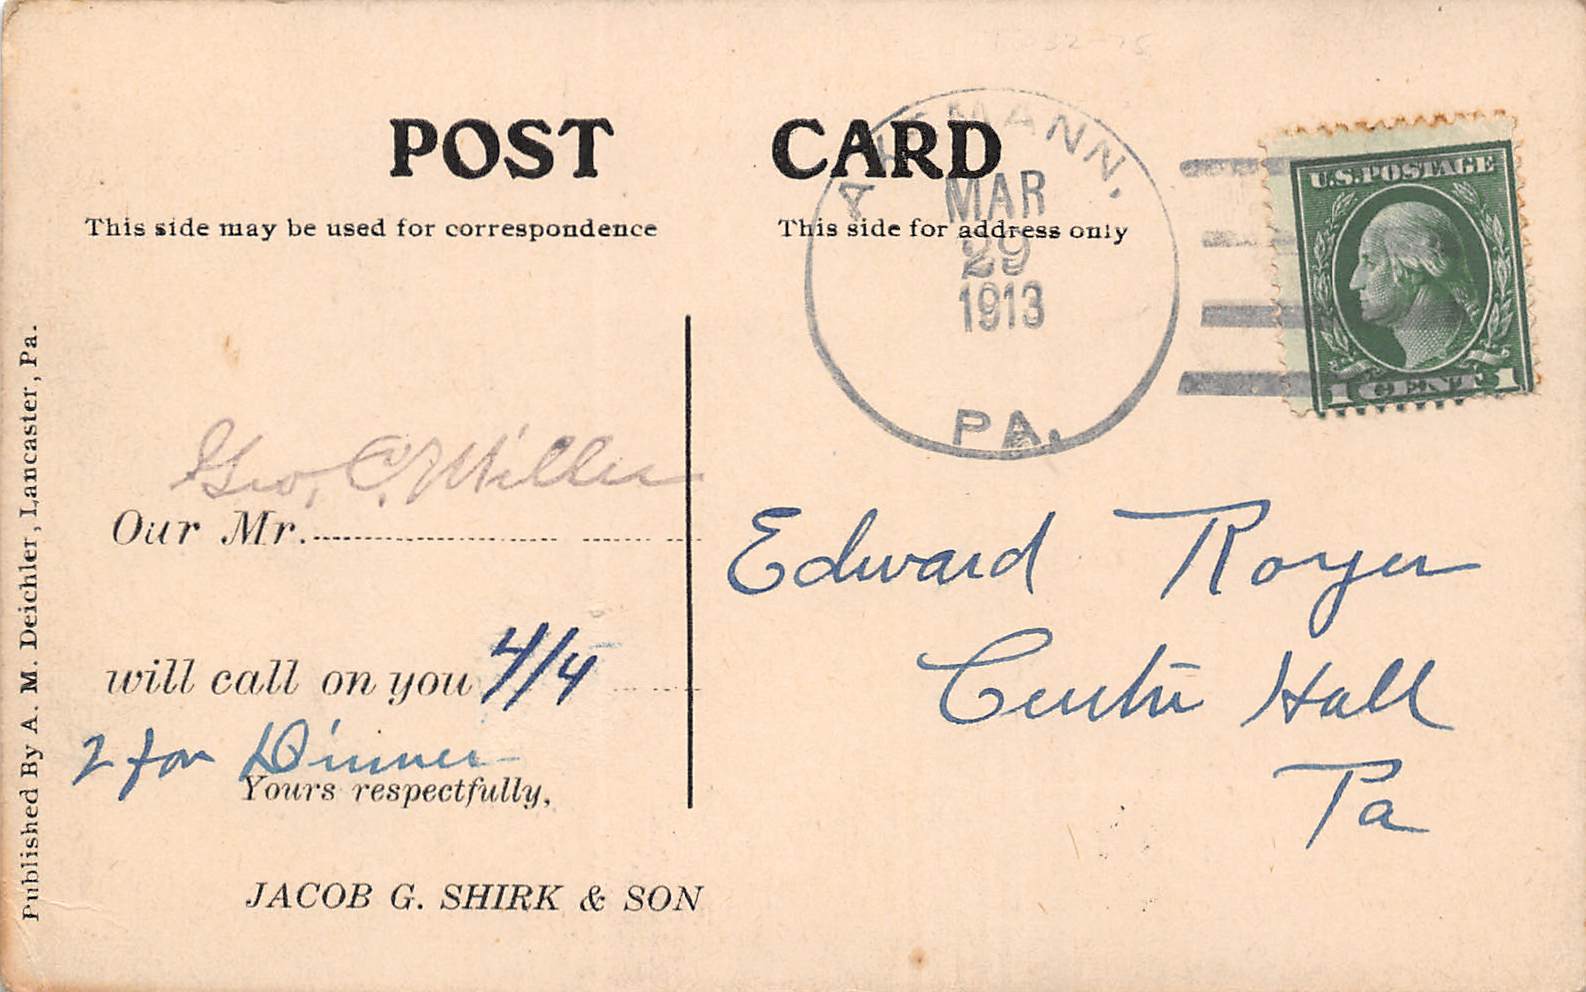 POST CARD
This side may be used for correspondence
This side for address only
MAR
29
1913
PA.
U.S. POSTAGE
1 CENT 1
Published By A. M. Deichler, Lancaster, Pa.
Geo. C. Miller
Our Mr.
will call on you 4/4
2 for Dinner
Yours respectfully,
JACOB G. SHIRK & SON
Edward Royer
Centre Hall
Pa